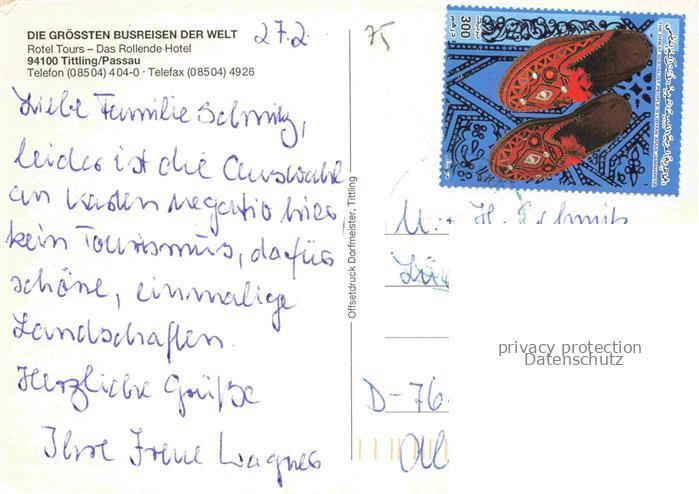 DIE GRÖSSTEN BUSREISEN DER WELT
Rotel Tours – Das Rollende Hotel
94100 Tittling/Passau
Telefon (08504) 404-0 · Telefax (08504) 4926
27.2.
75
Liebe Familie Schmitz,
leider ist die Auswahl
an Karten negativ hier,
kein Tourismus, dafür
schöne, einmalige
Landschaften.
Herzliche Grüße
Ihre Irene Wagner
Offsetdruck Dorfmeister, Tittling
300
U. + H. Schmitz
D-76
privacy protection
Datenschutz